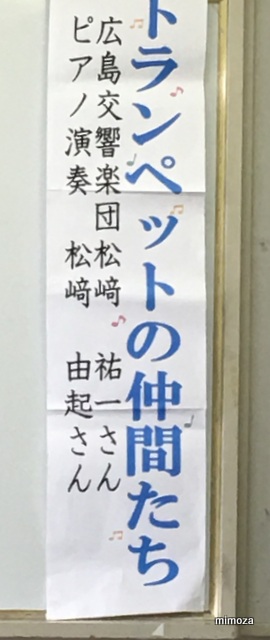 トランペットの仲間たち
広島交響楽団松﨑 祐一さん
ピアノ演奏 松﨑 由起さん
mimoza